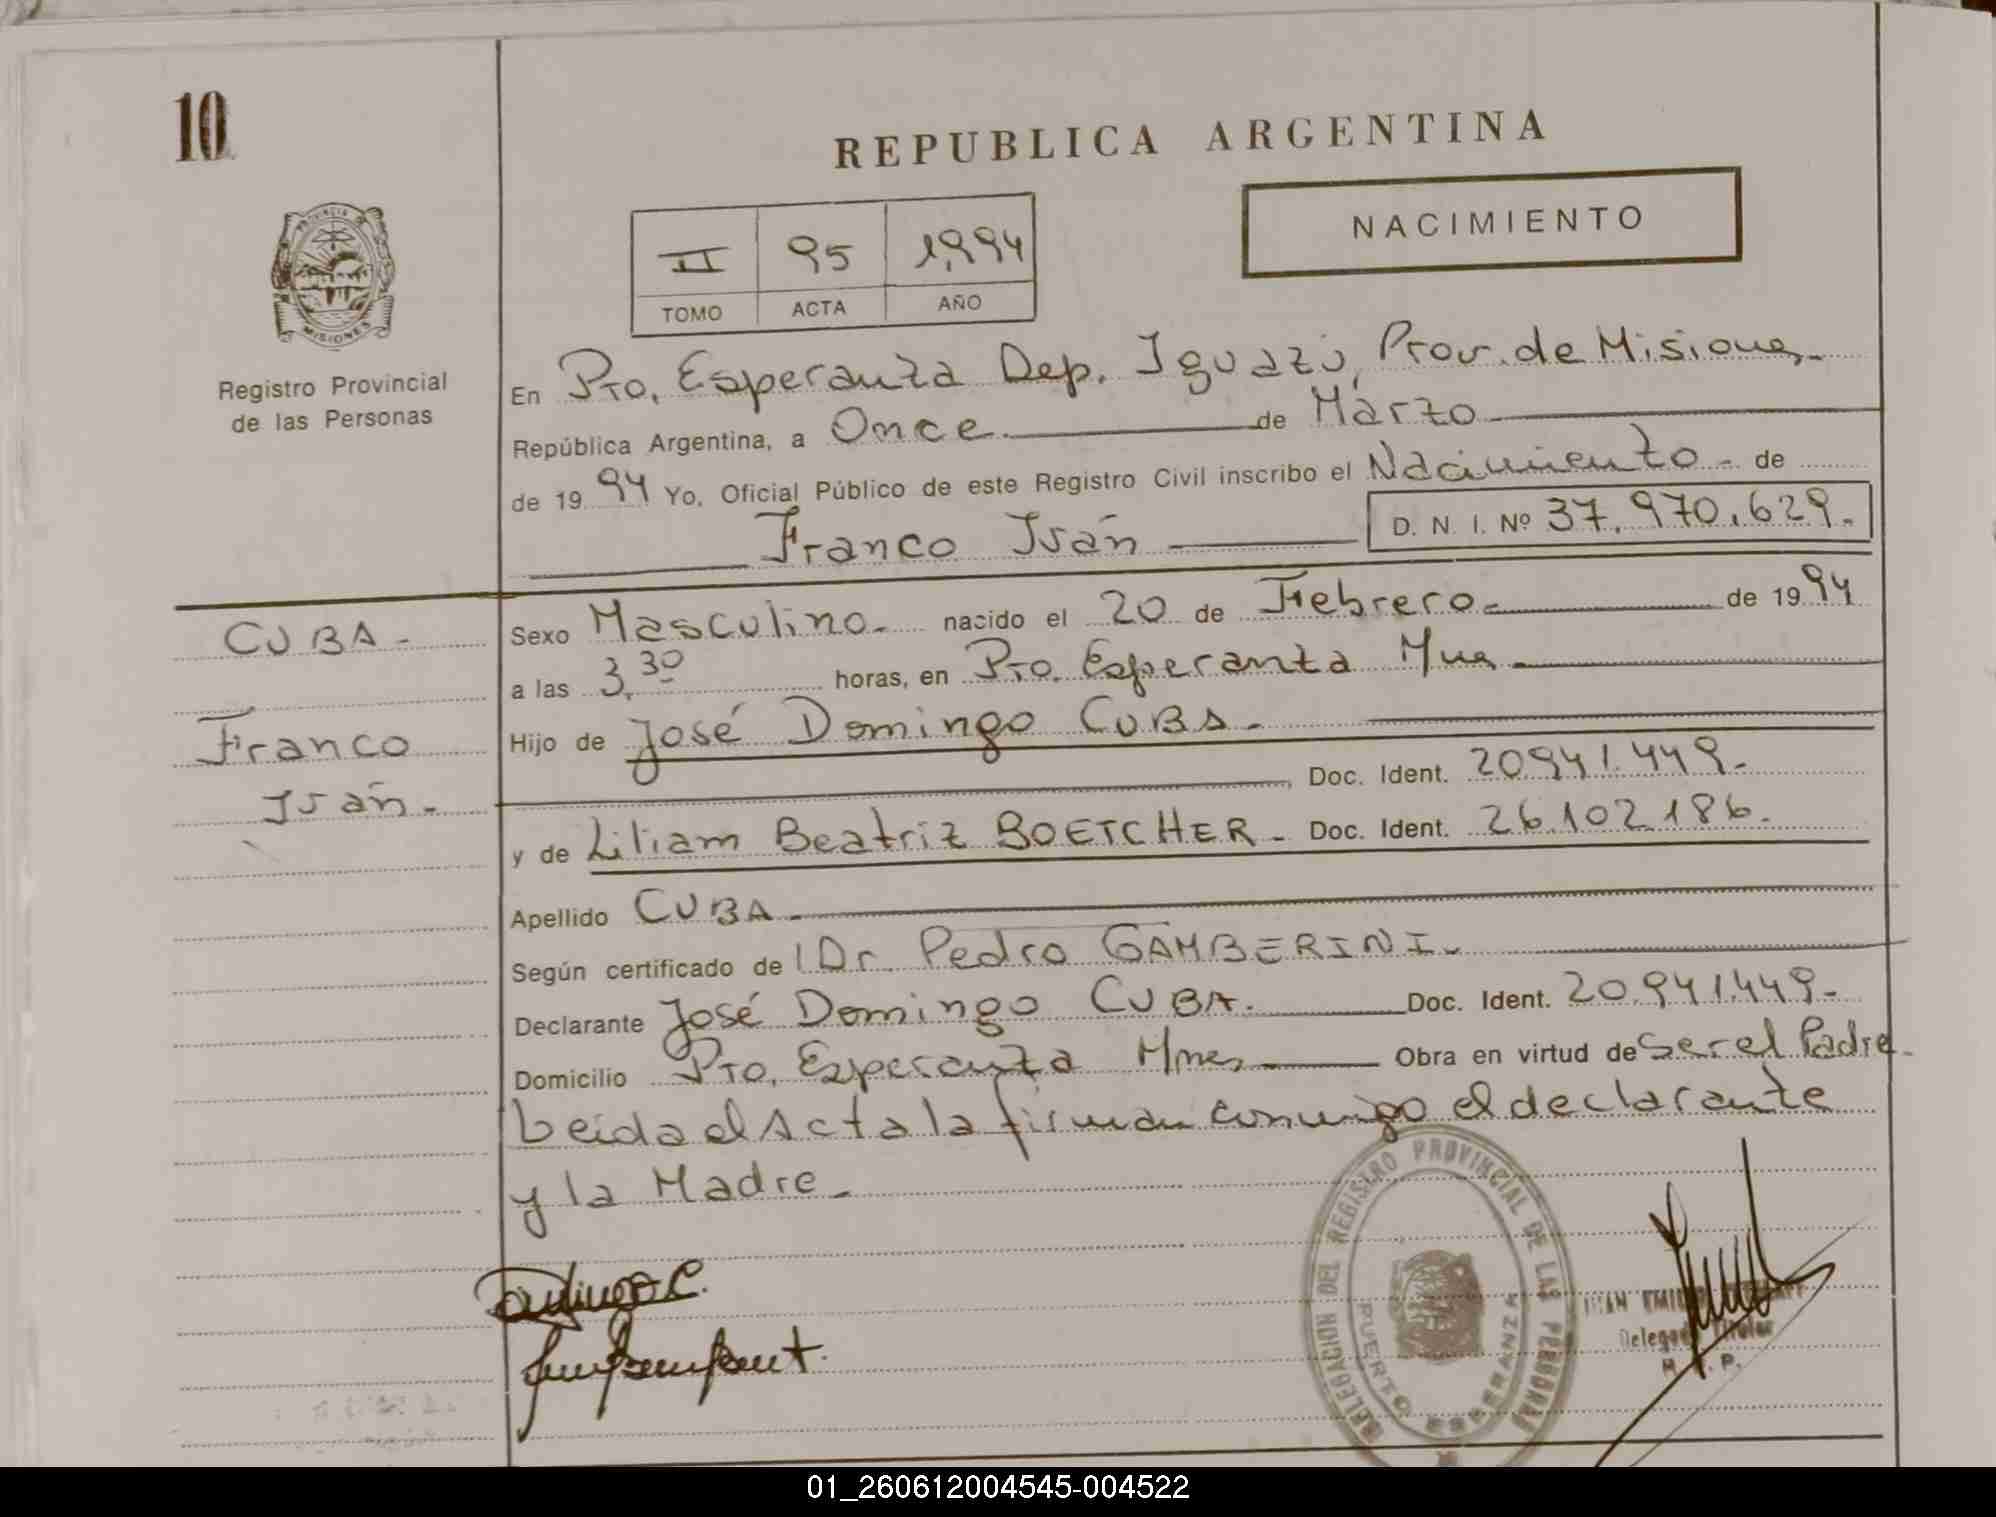 10
REPUBLICA ARGENTINA
NACIMIENTO
II 95 1.994
TOMO ACTA AÑO
PROVINCIA DE
MISIONES
Registro Provincial
de las Personas
En Pto. Esperanza Dep. Iguazú, Prov. de Misiones.-
República Argentina, a Once. de Marzo
de 19 94 Yo, Oficial Público de este Registro Civil inscribo el Nacimiento.- de
Franco Iván D. N. I. Nº 37.970.629.-
CUBA.-
Franco
Iván.-
Sexo Masculino.- nacido el 20 de Febrero.- de 19 94
a las 3,30 horas, en Pto. Esperanza Mnes.-
Hijo de José Domingo CUBA.-
, Doc. Ident. 20.941.449.-
y de Liliam Beatriz BOETCHER.- Doc. Ident. 26.102.186.-
Apellido CUBA.-
Según certificado de Dr. Pedro GAMBERINI.-
Declarante José Domingo CUBA.- Doc. Ident. 20.941.449.-
Domicilio Pto. Esperanza Mnes, Obra en virtud de Ser el Padre.-
Leida el Acta la firman conmigo el declarante
y la Madre.-
DELEGACION DEL REGISTRO PROVINCIAL DE LAS PERSONAS
PUERTO ESPERANZA
Delegado Titular
01_260612004545-004522